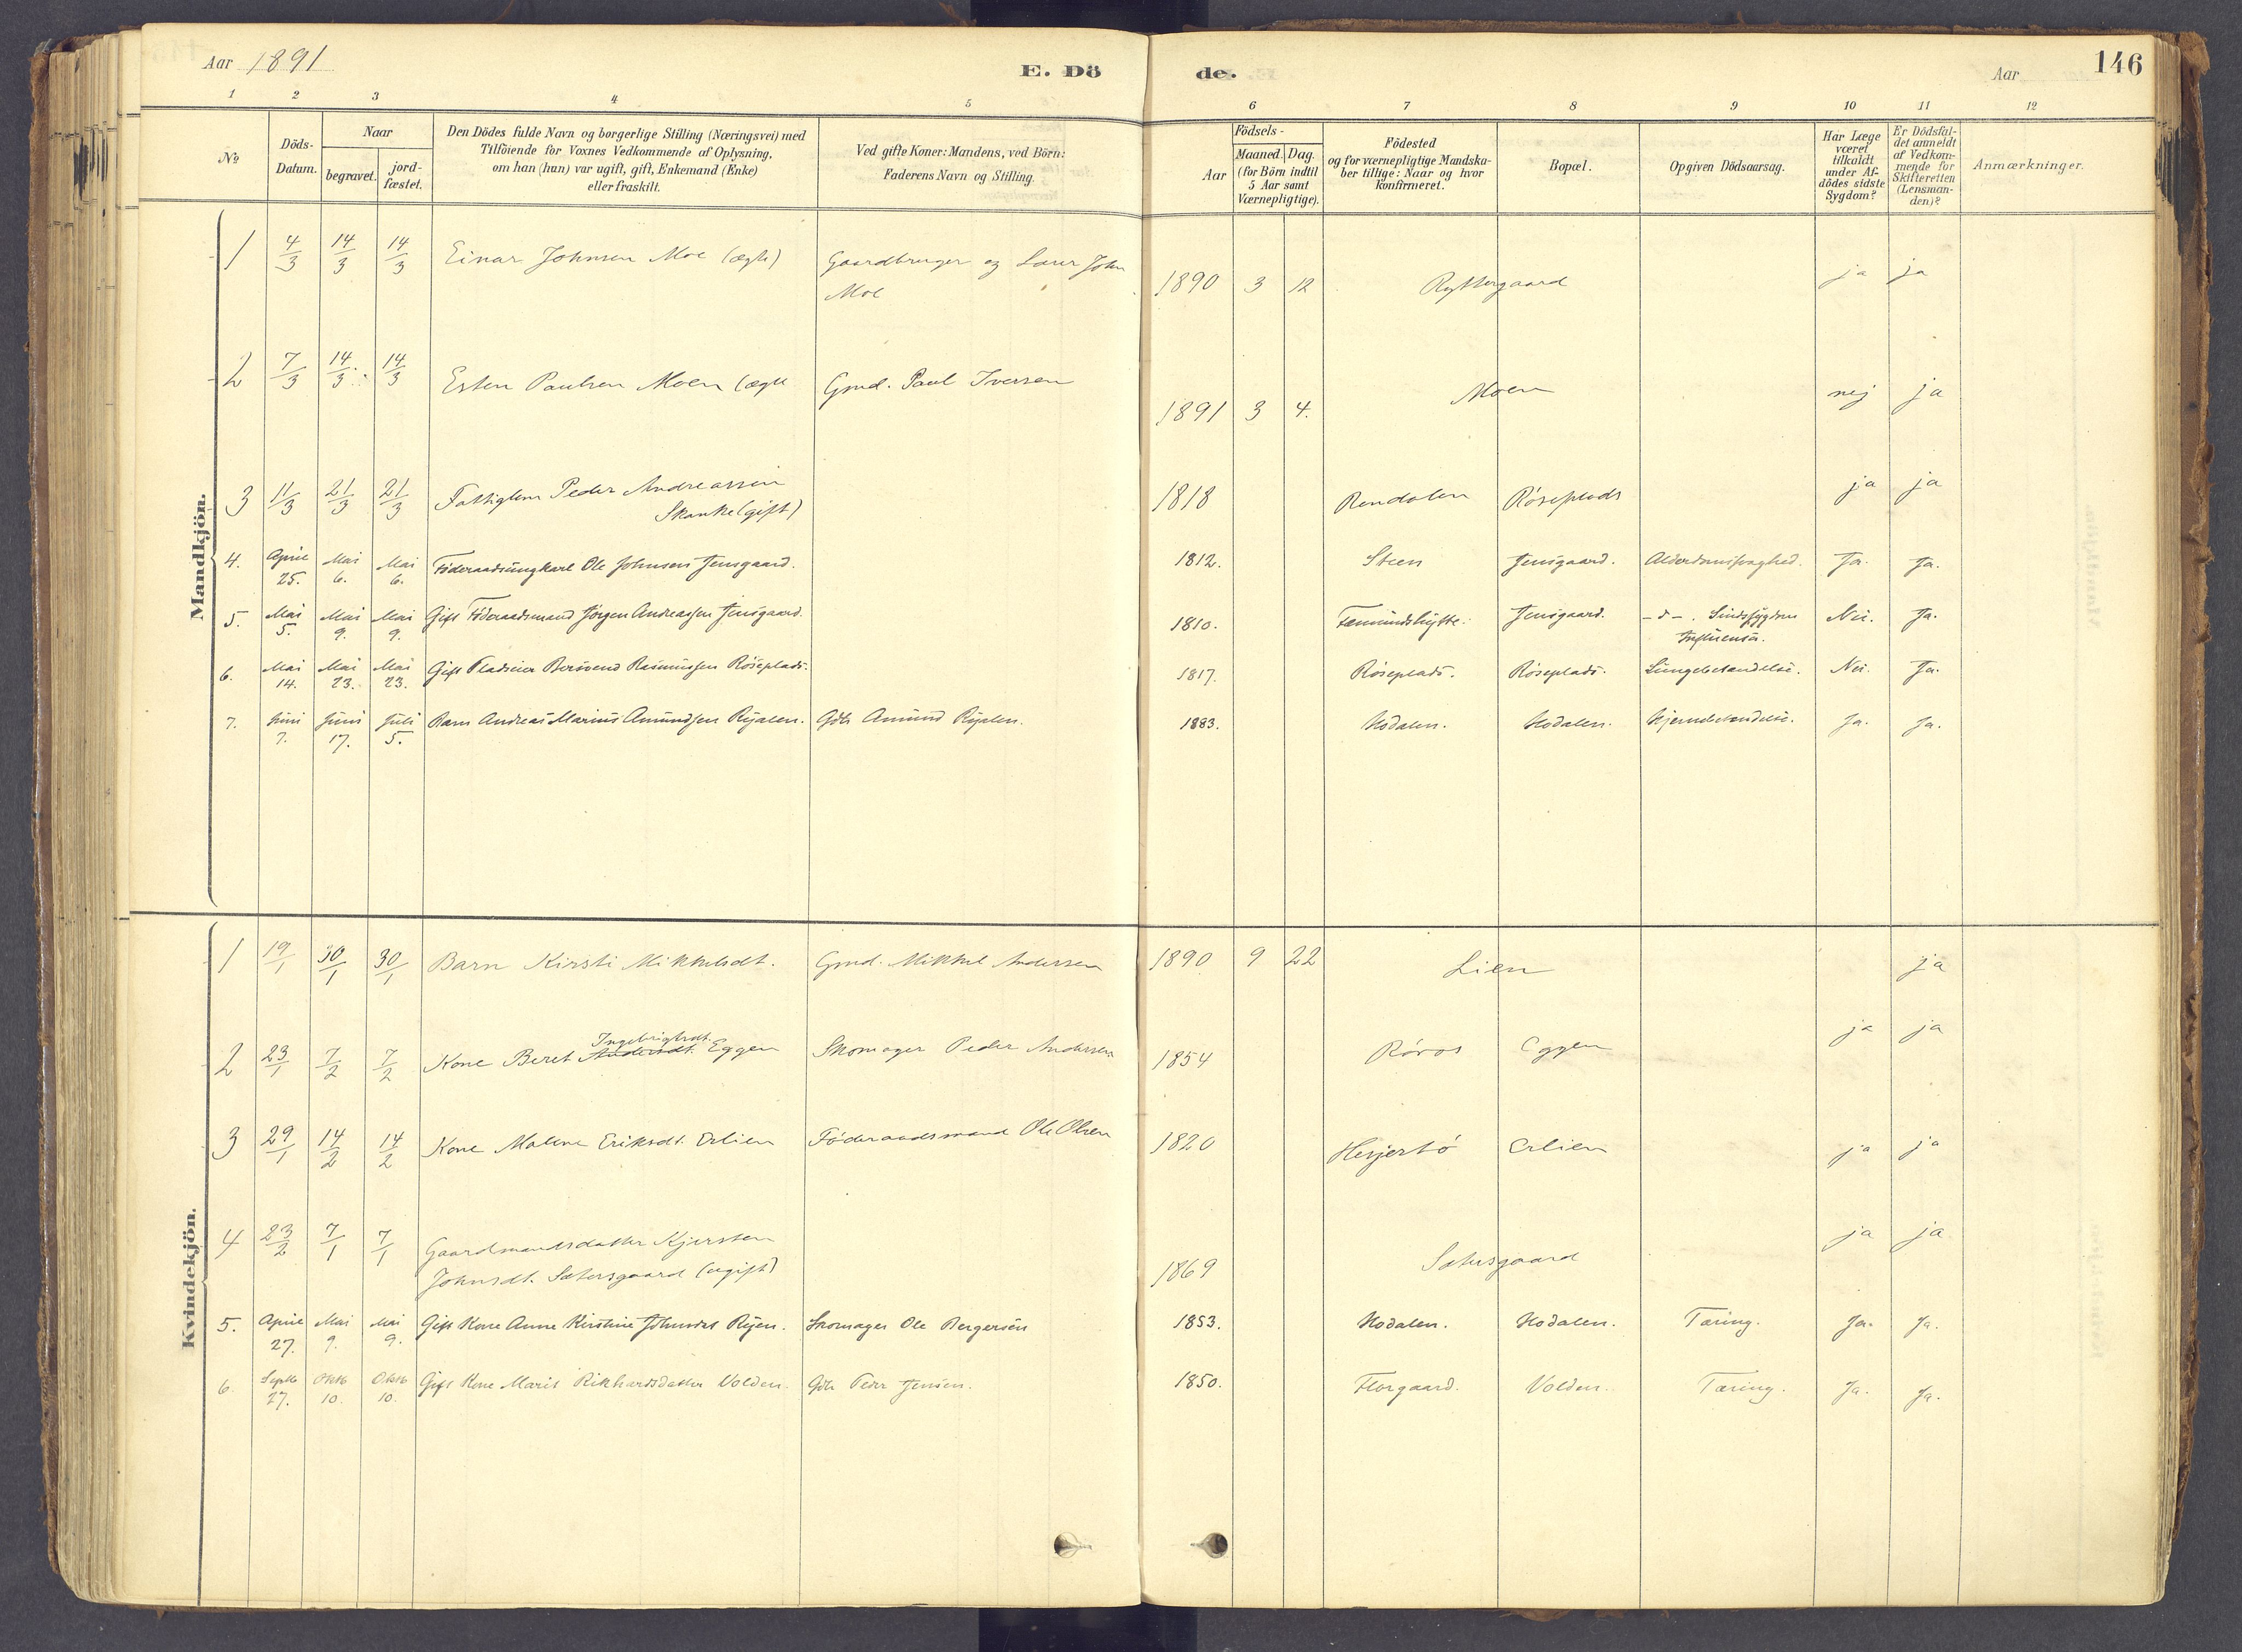 Aar 1891
E. Dö
de.
Aar
146
1 2 3 4 5 6 7 8 9 10 11 12
No
Döds-
Datum.
Naar
begravet.
jord-
fæstet.
Den Dödes fulde Navn og borgerlige Stilling (Næringsvei) med
Tilföiende for Voxnes Vedkommende af Oplysning,
om han (hun) var ugift, gift, Enkemand (Enke)
eller fraskilt.
Ved gifte Koner: Mandens, ved Börn:
Faderens Navn og Stilling.
Födsels-
Aar
Maaned. Dag.
(for Börn indtil
5 Aar samt
Værnepligtige).
Födested
og for værnepligtige Mandska-
ber tillige: Naar og hvor
konfirmeret.
Bopæl.
Opgiven Dödsaarsag.
Har Læge
været
tilkaldt
under Af-
dödes sidste
Sygdom?
Er Dödsfal-
det anmeldt
af Vedkom-
mende for
Skifteretten
(Lensman-
den)?
Anmærkninger.
Mandkjön.
1 4/3 14/3 14/3 Einar Johnsen Moe (ægte) Gaardbruger og Lærer John
Moe 1890 3 12 Ryttergaard ja ja
2 7/3 14/3 14/3 Esten Paulsen Moen (ægte Gmd. Paul Iversen 1891 3 4. Moen nej ja
3 11/3 21/3 21/3 Fattiglem Peder Andreassen
Skanke (gift) 1818 Rendalen Röseplads ja ja
4. April 25. Mai 6. Mai 6. Föderaadsungkarl Ole Johnsen Jensgaard. 1812. Steen Jensgaard. Alderdomssvaghed. Ja. Ja.
5. Mai 5. Mai 9. Mai 9. Gift Föderaadsmand Jörgen Andreassen Jensgaard. 1810. Fæmundshytte. Jensgaard. -d-. Sindssygdom
Influensa. Nei. Ja.
6. Mai 14. Mai 23. Mai 23. Gift Pladseier Bersvend Rasmussen Röseplads. 1817. Röseplads. Röseplads. Lungebetændelse. Nei. Ja.
7. Juni 7. Juni 17. Juli 5. Barn Andreas Marius Amundsen Ryalen. Gdb Amund Ryalen. 1883. Hodalen. Hodalen. Hjernebetændelse. Ja. Ja.
Kvindekjön.
1 19/1 30/1 30/1 Barn Kirsti Mikkelsdt. Gmd. Mikkel Andersen 1890 9 22 Lien ja
Ingebrigtsdt.
2 23/1 7/2 7/2 Kone Beret Andersdt. Eggen Skomager Peder Andersen 1854 Röros Eggen ja ja
3 29/1 14/2 14/2 Kone Malene Eriksdt. Erlien Föderaadsmand Ole Olsen 1820 Hesjertö Erlien ja ja
4 23/2 7/1 7/1 Gaardmandsdatter Kjersten
Johnsdt. Sætersgaard (ugift) 1869 Sætersgaard ja ja
5. April 27. Mai 9. Mai 9. Gift Kone Anne Kirstine Johnsdt Ryen. Skomager Ole Bergersen 1853. Hodalen. Hodalen. Tæring. Ja. Ja.
6. Septb 27. Oktb 10. Oktb 10. Gift Kone Marit Rikhardsdatter Volden. Gdb Peder Jensen. 1850. Florgaard. Volden. Tæring. Ja. Ja.